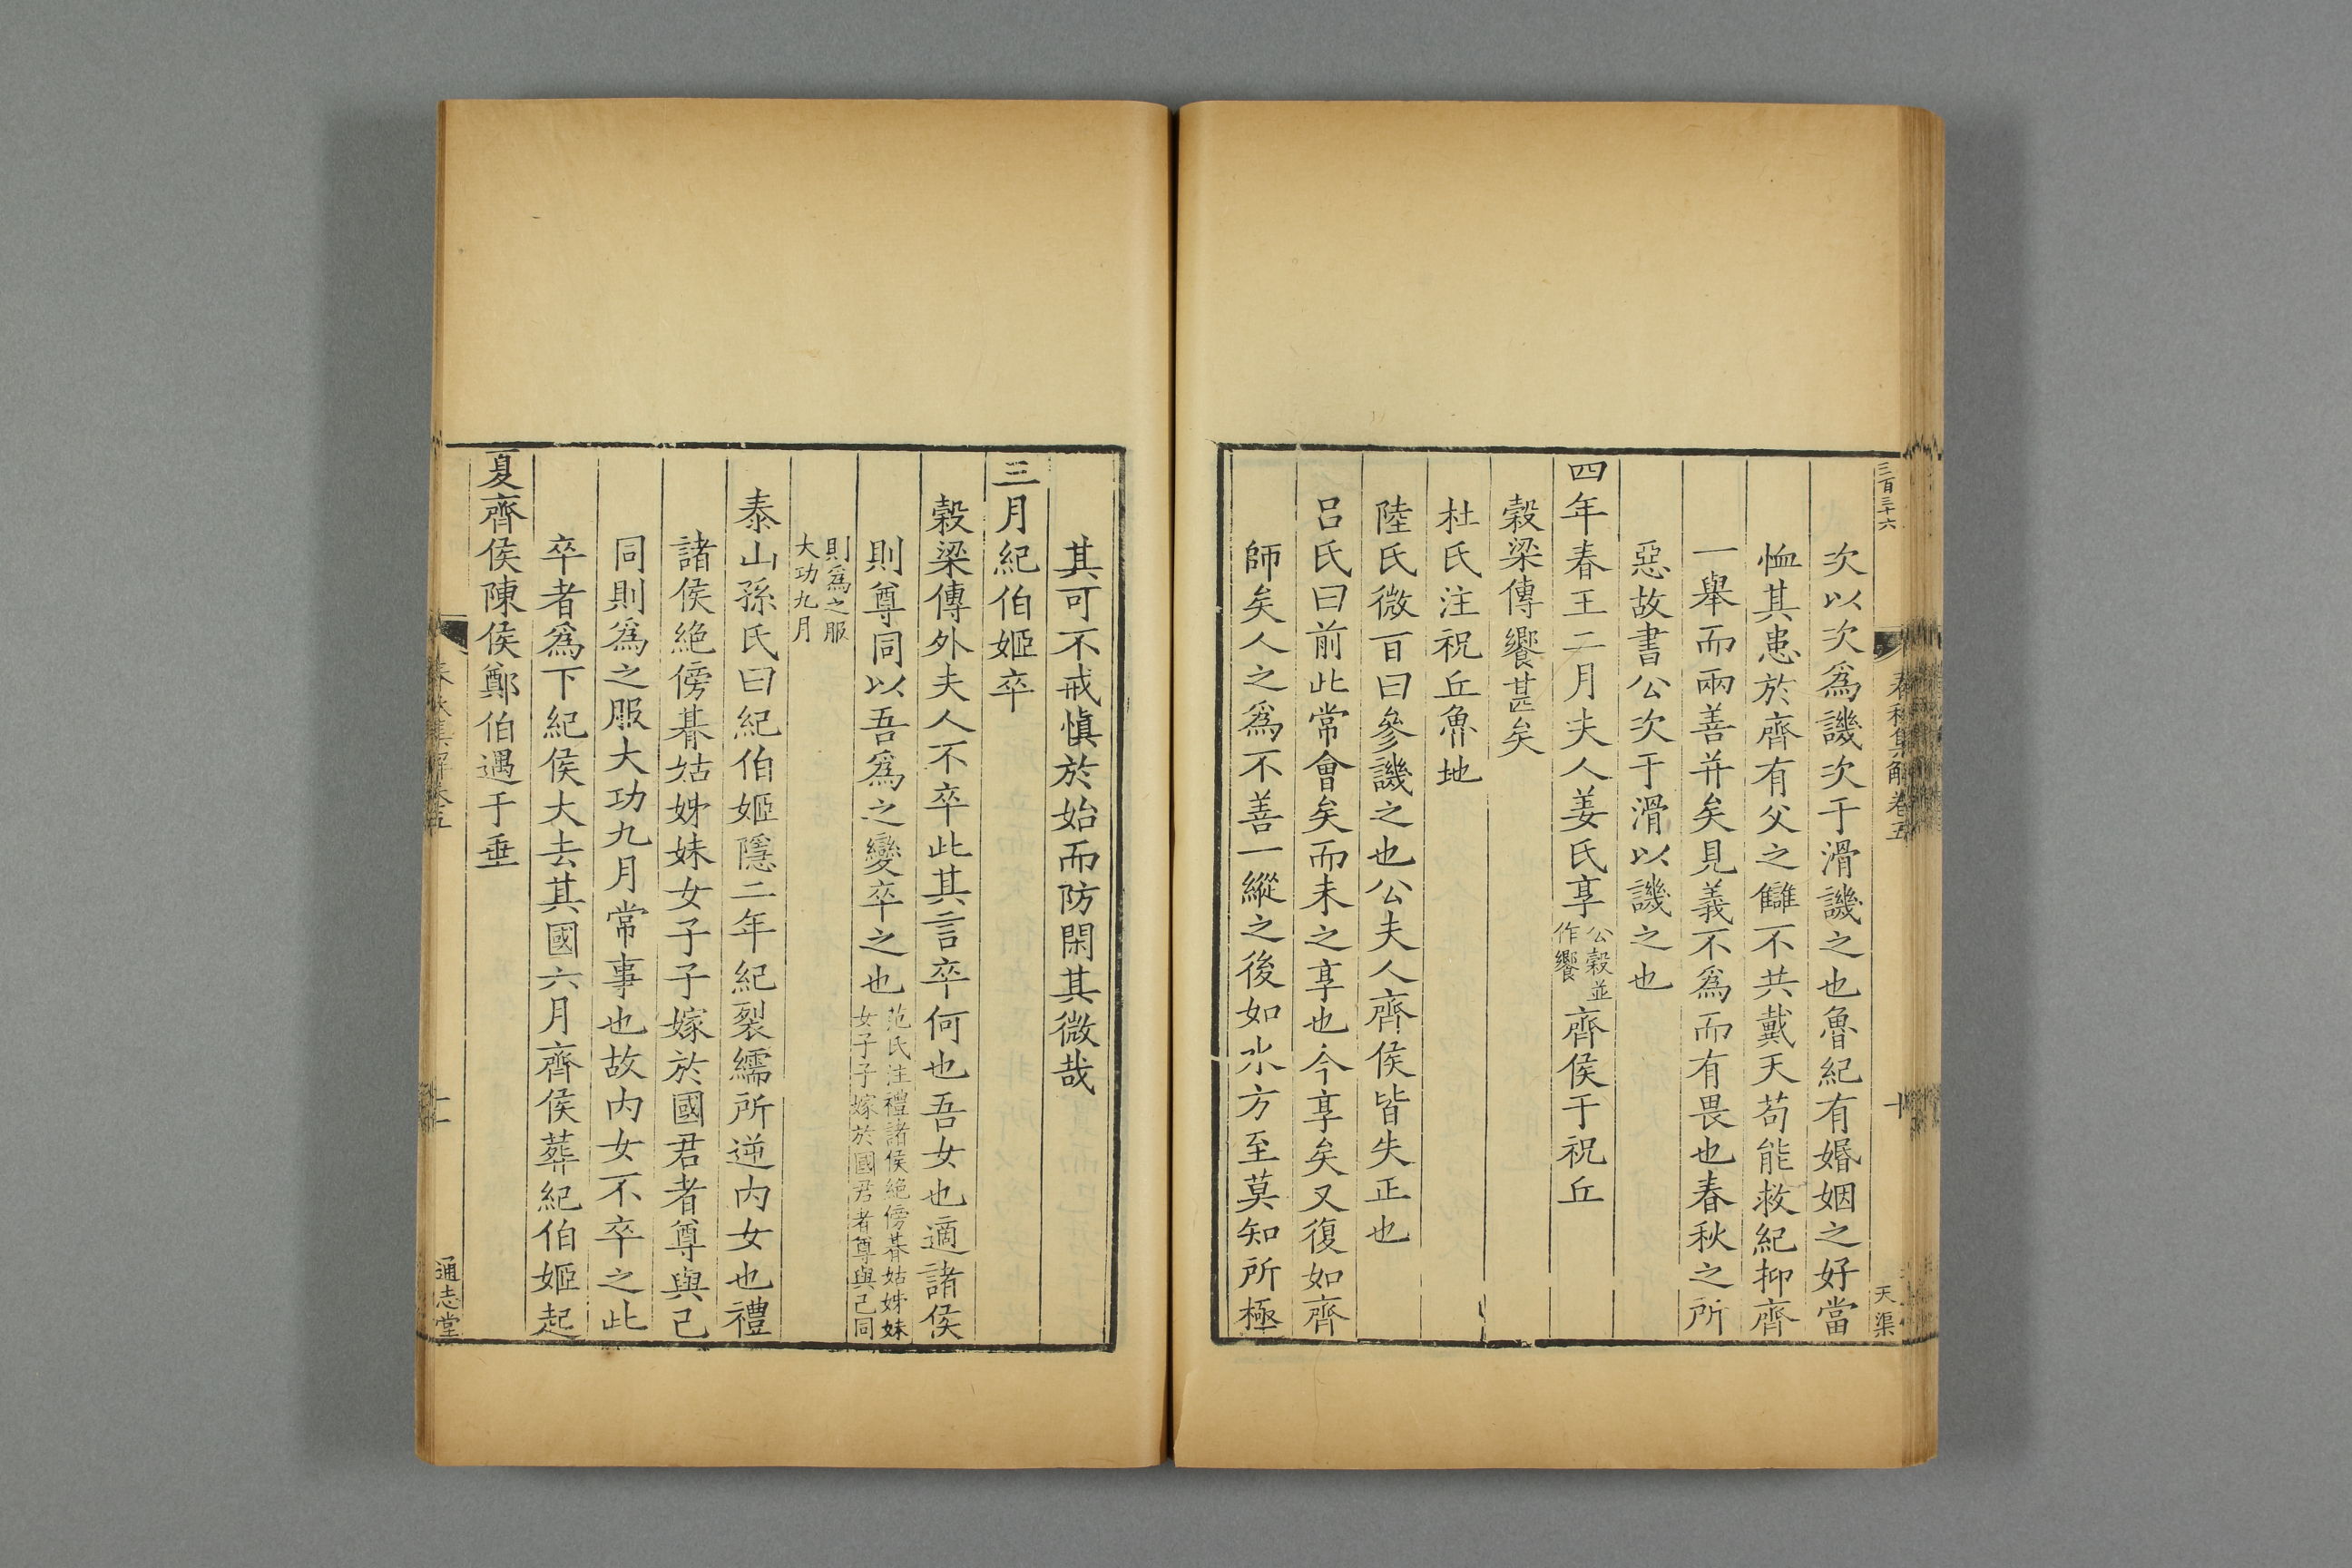 三百三十六
春秋集解卷五
十
天渠
次以次爲譏次于滑譏之也魯紀有婚姻之好當
恤其患於齊有父之讎不共戴天苟能救紀抑齊
一舉而兩善并矣見義不爲而有畏也春秋之所
惡故書公次于滑以譏之也
四年春王二月夫人姜氏享公穀並作饗齊侯于祝丘
穀梁傳饗甚矣
杜氏注祝丘魯地
陸氏微百曰參譏之也公夫人齊侯皆失正也
呂氏曰前此常會矣而未之享也今享矣又復如齊
師矣人之爲不善一縱之後如水方至莫知所極
其可不戒愼於始而防閑其微哉
三月紀伯姬卒
穀梁傳外夫人不卒此其言卒何也吾女也適諸侯
則尊同以吾爲之變卒之也范氏注禮諸侯絶傍朞姑姊妹女子子嫁於國君者尊與己同
則爲之服大功九月
泰山孫氏曰紀伯姬隱二年紀裂繻所逆內女也禮
諸侯絶傍朞姑姊妹女子子嫁於國君者尊與己
同則爲之服大功九月常事也故內女不卒之此
卒者爲下紀侯大去其國六月齊侯葬紀伯姬起
夏齊侯陳侯鄭伯遇于垂
春秋集解卷五
十一
通志堂